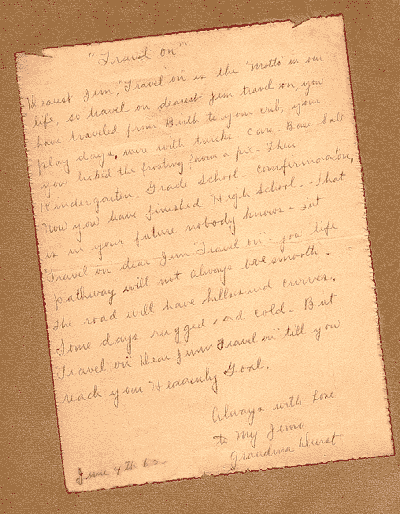 "Travel on"
Dearest Jim, "Travel on" is the "Motto" in our
life, so travel on dearest Jim travel on you
have traveled from Birth to your crib, your
play days, were with trucks Cars, Base ball
you licked the frosting from a pie. Then
Kindergarten Grade School. Comfirmation,
Now you have finished High School - What
is in your future nobody knows - but
Travel on dear Jim "Travel on" - your life
pathway will not always be smooth.
the road will have hills and curves.
Some days rugged and cold. But
Travel on Dear Jim "Travel on" till you
reach your Heavenly Goal.
Always with Love
to My Jim
Grandma Hurst
June 4th